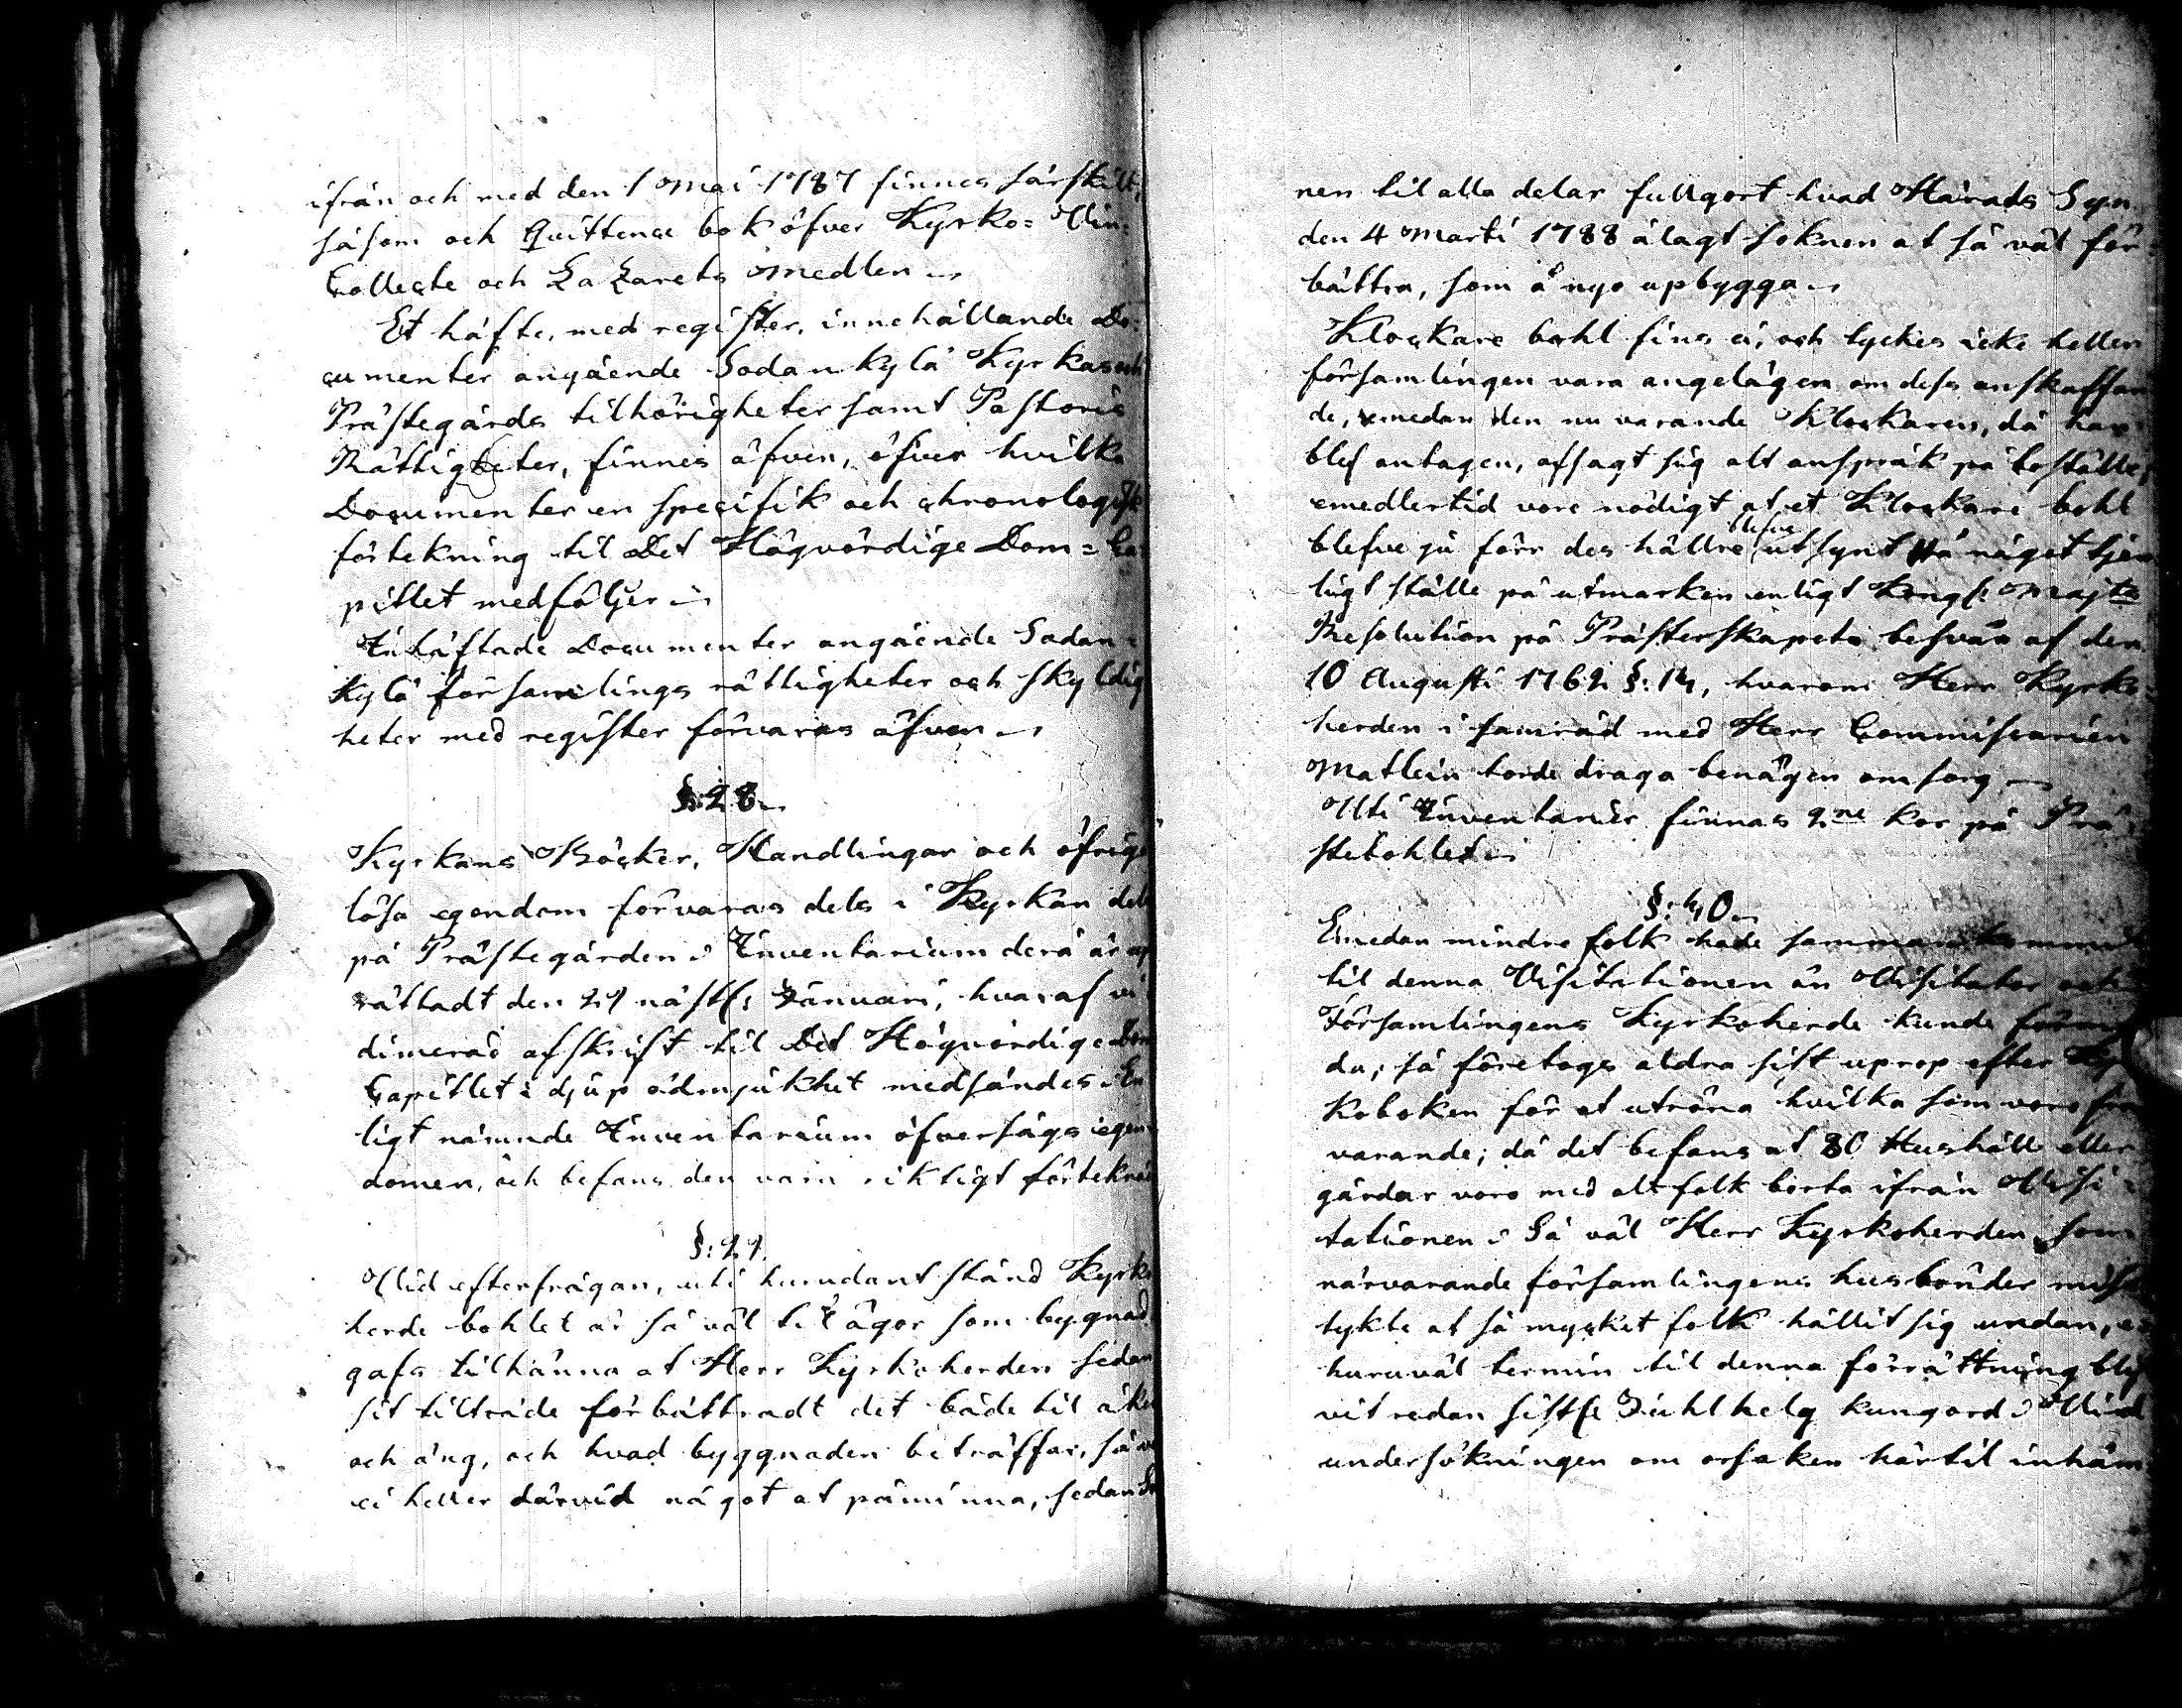 ifrån och med den 1 Maji 1787 finnes särskilt,
såsom och Quittence bok öfver Kyrko= Vin=
Collecte och Lazarets Medlen
Et häfte, med register, innehållande Do=
cumenter angående Sodankylä Kyrkas och
Prästegårds tilhörigheter samt Pastoris
Rättigheter, finnes äfven, öfver hvilka
Documenter en specifik och chronologisk
förtekning til Det Högvördige Dom= Ca=
pitlet medföljer
Inhäftade Documenter angående Sodan=
kylä församlings rättigheter och skyldig
heter med register förvaras äfven
§: 28.
Kyrkans Böcker, Handlingar och öfriga
lösa egendom förvaras dels i Kyrkan dels
på Prästegården. Inventarium derå är up
rättadt den 29 nästl: Januari, hvaraf vi
dimerad afskrift til Det Högvördige Dom
Capitlet i djup ödmjukhet medsändes. En
ligt nämnde Inventarium öfversågs egen
domen, och befans den vara riktigt förteknad
§: 29.
Vid efterfrågan, uti hurudant stånd Kyrko
herde bohlet är så väl til ägor som bygnad
gafs tilkänna at Herr Kyrkoherden sedan
sit tilträde förbättradt det både til åker
och äng, och hvad byggnaden beträffar, så var
ei heller därvid något at påminna, sedan
nen til alla delar fullgort hvad Härads Syn
den 4 Marti 1788 ålagt soknen at så väl för=
bättra, som å nyo upbygga
Klockare bohl fins ei, och tyckes icke heller
församlingen vara angelägen om dess anskaffan
de, emedan den nu varande Klockaren, då han
blef antagen, afsagt sig alt anspråk på boställe,
emedlertid vore nödigt at et Klockare bohl
blefve ju förr des hällre blefve utsynt på något tjen
ligt ställe på utmarken enligt Kongl: Majts
Resolution på Prästerskapets besvär af den
10 Augusti 1762 §: 14, hvarom Herr Kyrko=
herden i samråd med Herr Commissarien
Matlein torde draga benägen omsorg
Uti Inventarier finnas 2ne kor på Prä=
stebohlet
§: 40.
Emedan mindre folk hade sammankommit
til denna Visitationen än Visitator och
Församlingens Kyrkoherde kunde förmo
da; så företogs aldra sist uprop efter Kyr
koboken för at utröna hvilka som voro från
varande; då det befans at 80 Hushåll eller
gårdar voro med alt folk borta ifrån Visi=
tationen. Så väl Herr Kyrkoherden som
närvarande församlingens husbönder miss
tykte at så mycket folk hållit sig undan,
huruväl termin til denna förrättning blif
vit redan sistl: Juhlhelg kungord. Vid
undersökningen om orsaken härtil inhäm